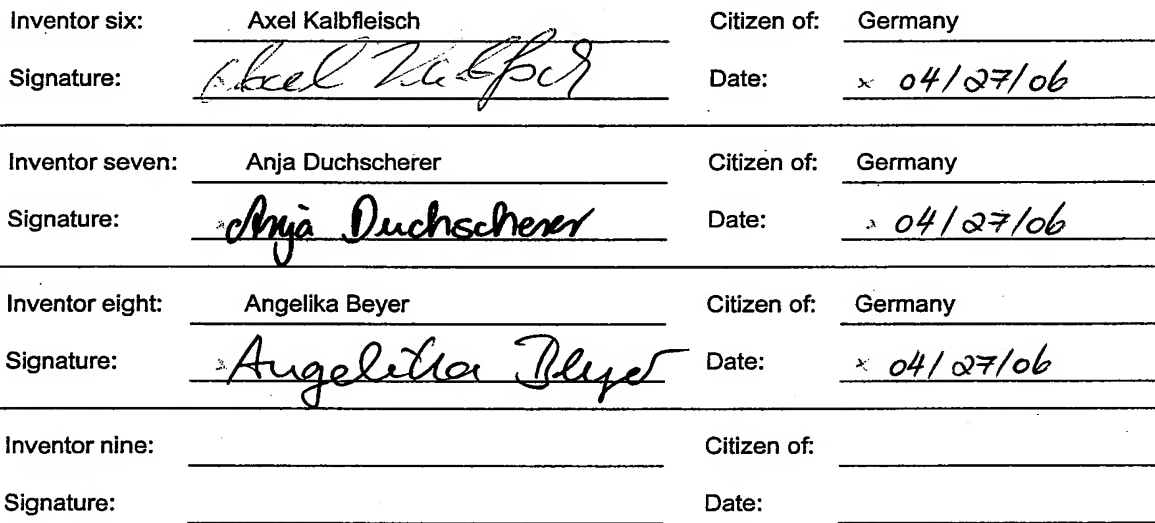 Inventor six: Axel Kalbfleisch Citizen of: Germany
Signature: Axel Kalbfleisch Date: × 04/27/06
Inventor seven: Anja Duchscherer Citizen of: Germany
Signature: × Anja Duchscherer Date: × 04/27/06
Inventor eight: Angelika Beyer Citizen of: Germany
Signature: × Angelika Beyer Date: × 04/27/06
Inventor nine: Citizen of:
Signature: Date: